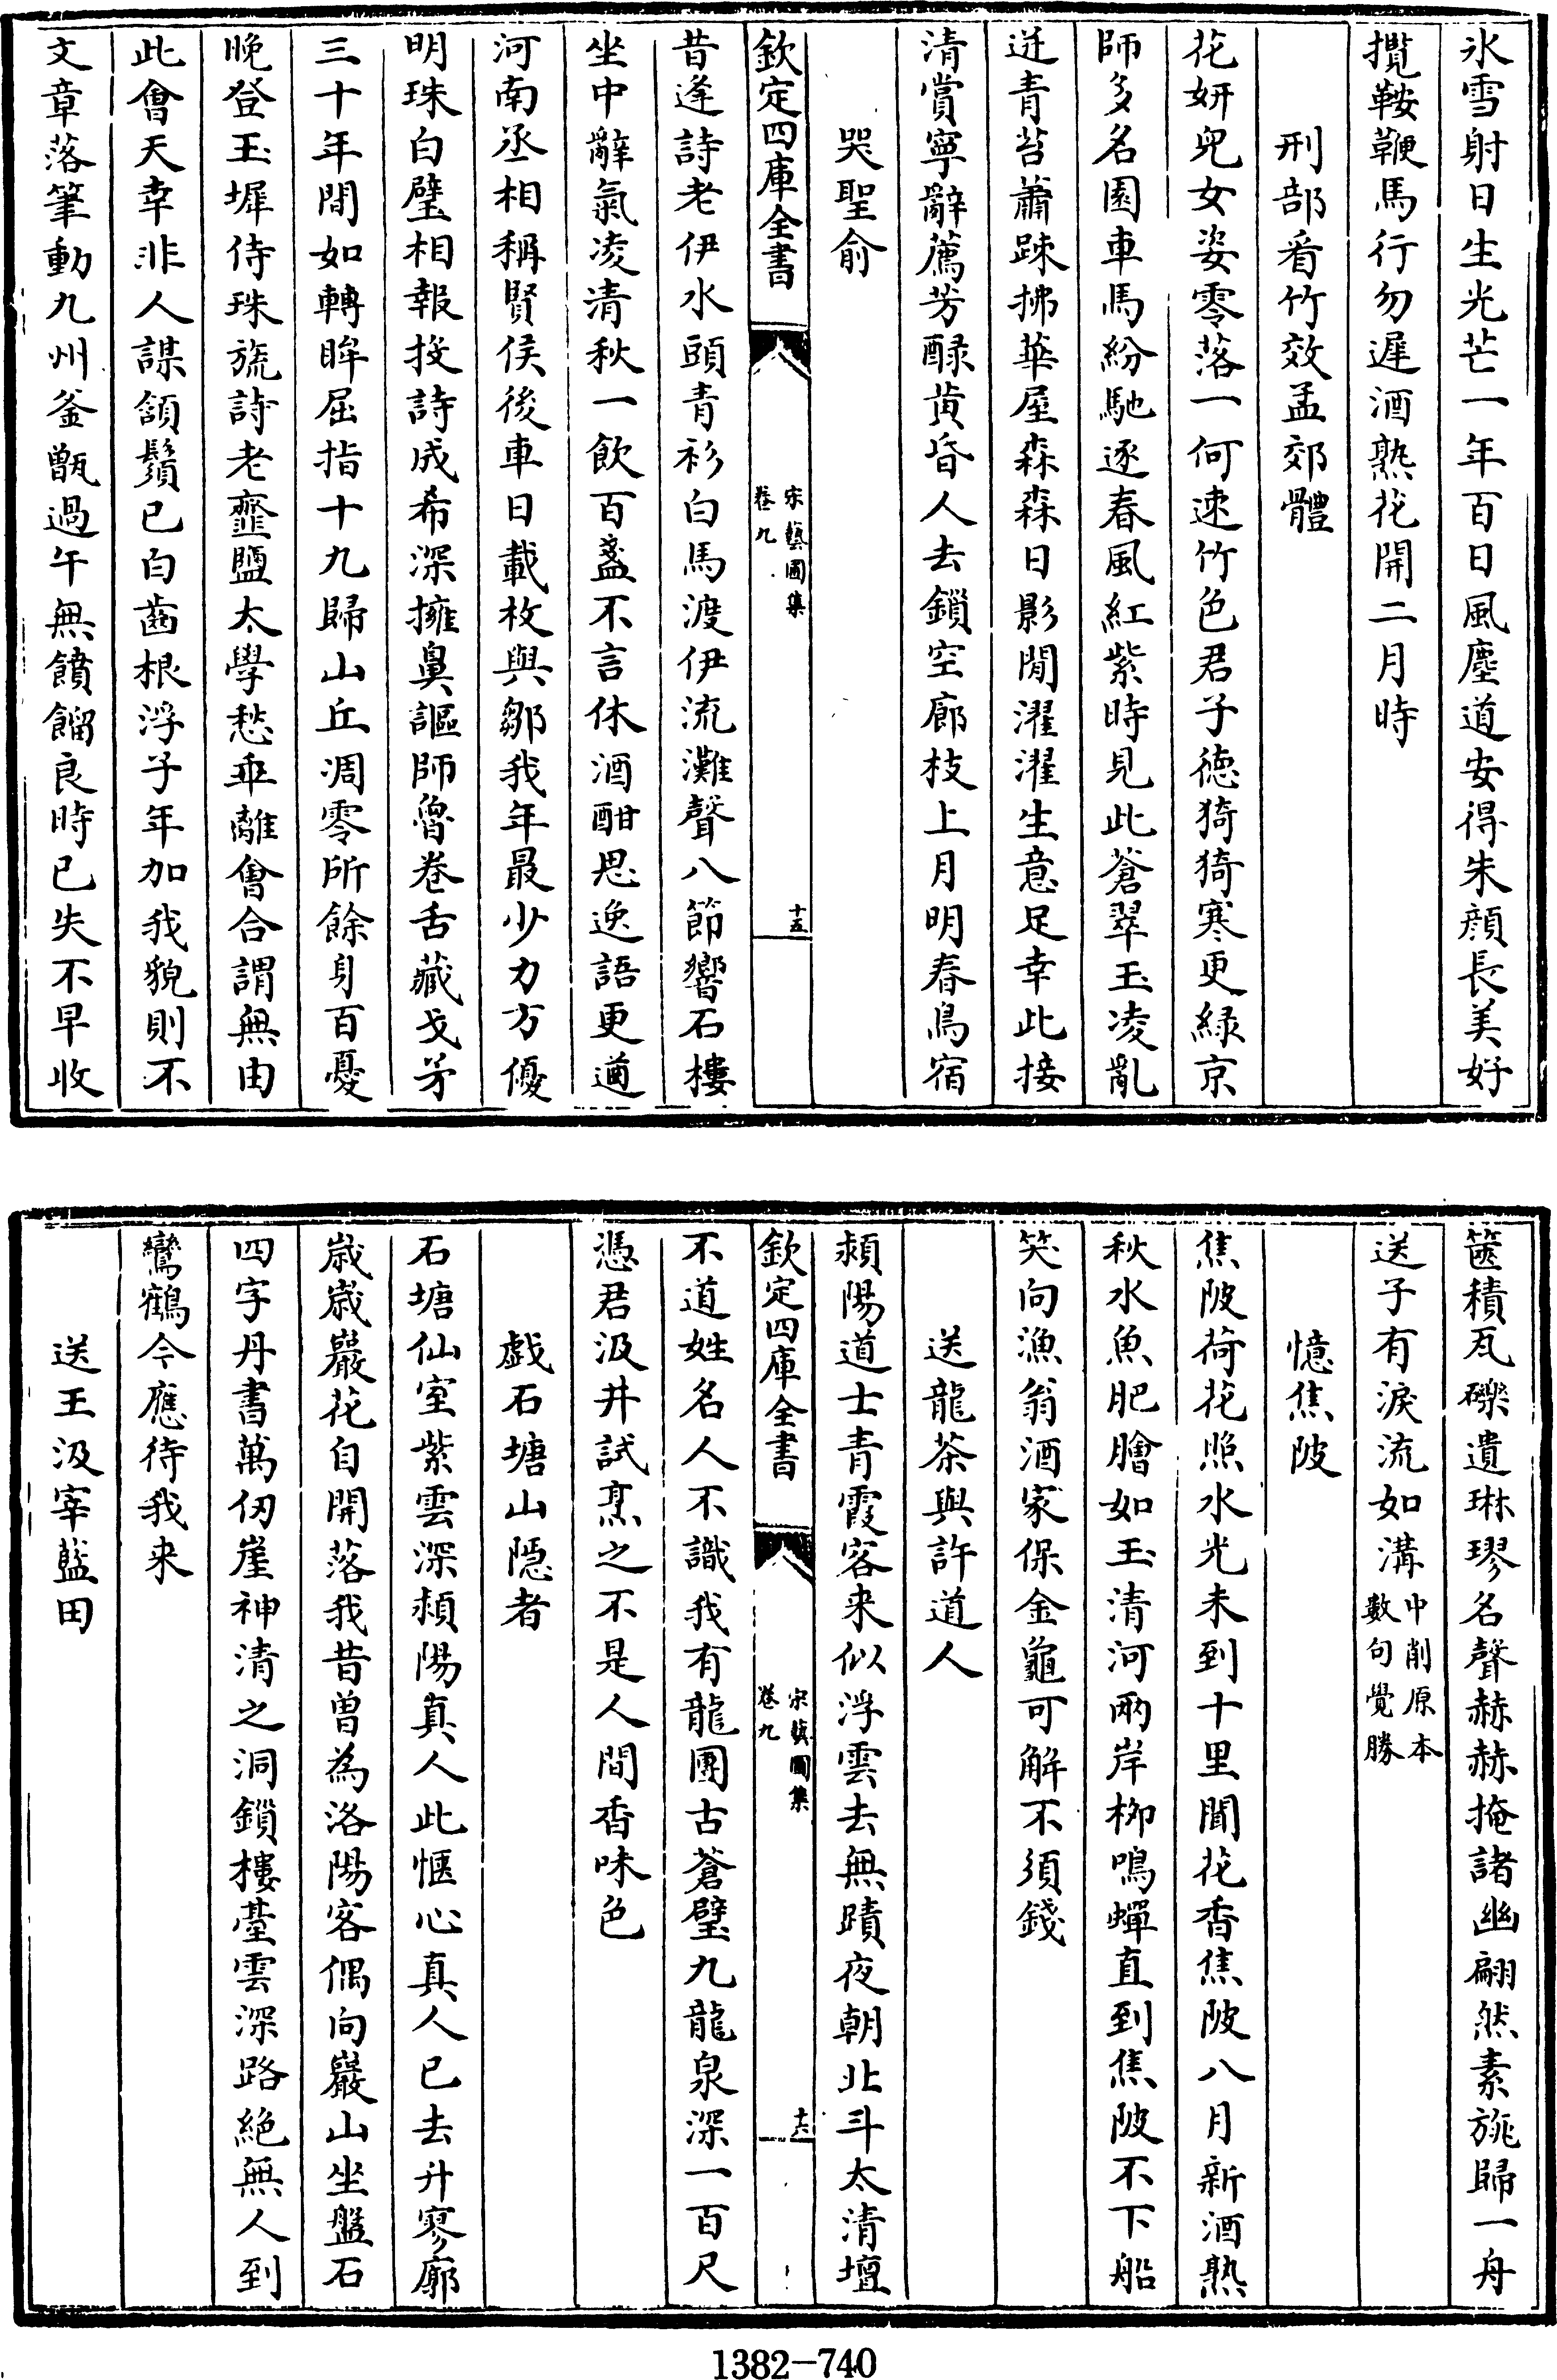 氷雪射日生光芒一年百日風塵道安得朱顔長美好
攬鞍鞭馬行勿遲酒熟花開二月時
刑部看竹效孟郊體
花妍兒女姿零落一何速竹色君子德猗猗寒更緑京
師多名園車馬紛馳逐春風紅紫時見此蒼翠玉凌亂
迸青苔蕭踈拂華屋森森日影閒濯濯生意足幸此接
清賞寧辭薦芳醁黄昏人去鎖空廊枝上月明春鳥宿
哭聖俞
欽定四庫全書
宋藝圃集
卷九
十五
昔逢詩老伊水頭青衫白馬渡伊流灘聲八節響石樓
坐中辭氣凌清秋一飲百盞不言休酒酣思逸語更遒
河南丞相稱賢侯後車日載枚與鄒我年最少力方優
明珠白璧相報投詩成希深擁鼻謳師魯卷舌藏戈矛
三十年間如轉眸屈指十九歸山丘凋零所餘身百憂
晚登玉墀侍珠旒詩老虀鹽太學愁乖離會合謂無由
此會天幸非人謀頷鬚已白齒根浮子年加我貌則不
文章落筆動九州釜甑過午無饙餾良時已失不早收
篋積瓦礫遺琳璆名聲赫赫掩諸幽翩然素旐歸一舟
送子有淚流如溝中削原本數句覺勝
憶焦陂
焦陂荷花照水光未到十里聞花香焦陂八月新酒熟
秋水魚肥膾如玉清河兩岸柳鳴蟬直到焦陂不下船
笑向漁翁酒家保金龜可解不須錢
送龍茶與許道人
潁陽道士青霞客来似浮雲去無蹟夜朝北斗太清壇
欽定四庫全書
宋藝圃集
卷九
十六
不道姓名人不識我有龍團古蒼璧九龍泉深一百尺
憑君汲井試烹之不是人間香味色
戯石塘山隠者
石塘仙室紫雲深潁陽真人此愜心真人已去升寥廓
歳歳巖花自開落我昔曽為洛陽客偶向巖山坐盤石
四字丹書萬仞崖神清之洞鎖樓䑓雲深路絶無人到
鸞鶴今應待我来
送王汲宰藍田
1382-740